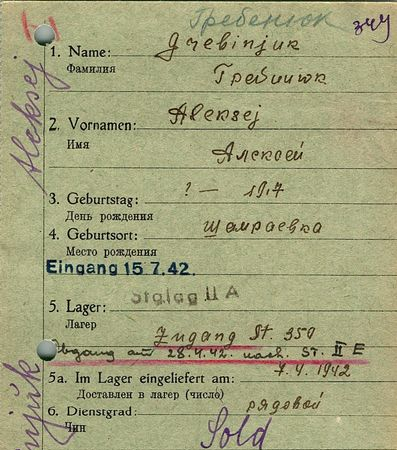 Гребенюк 344
1. Name: Grebinjuk
Фамилия Гребинюк
2. Vornamen: Aleksej
Имя Алексей
3. Geburtstag: ? — 1917
День рождения
4. Geburtsort: Шамраевка
Место рождения
Eingang 15.7.42.
5. Lager: Stalag II A
Лагер
Zugang St. 350
Abgang am 28.4.42 nach ST. II E
5a. Im Lager eingeliefert am: 7.4.1942
Доставлен в лагер (число)
6. Dienstgrad: рядовой
Чин Sold
Aleksej